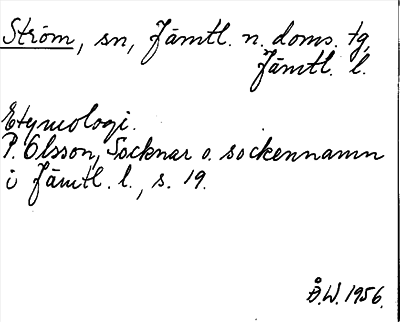 Ström, sn, Jämtl. n. doms. tg,
Jämtl. l.
Etymologi.
P. Olsson, Socknar o. sockennamn
i Jämtl. l., s. 19.
Å.W. 1956.